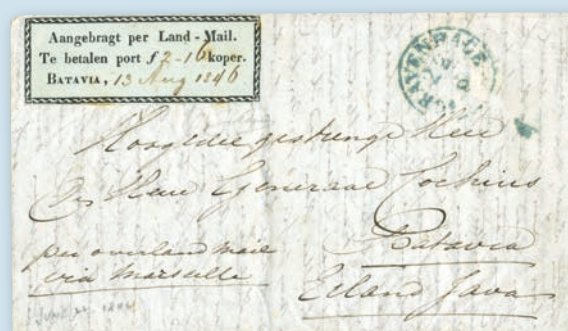 Aangebragt per Land-Mail.
Te betalen port f 2-16 koper.
BATAVIA, 13 Aug 1846
GRAVENHAGE
Hoog Edele gestrenge Heer
De Heer Generaal Cochius
Batavia
Eiland Java
per overland mail
via Marseille